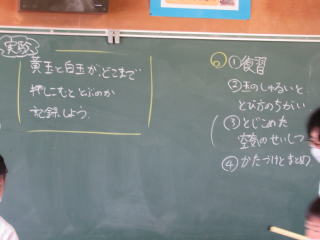 実験
黄玉と白玉が、どこまで
押しこむととぶのか
記録しよう。
①復習
②玉のしゅるいと
とび方のちがい
③とじこめた
空気のせいしつ
④かたづけとまとめ